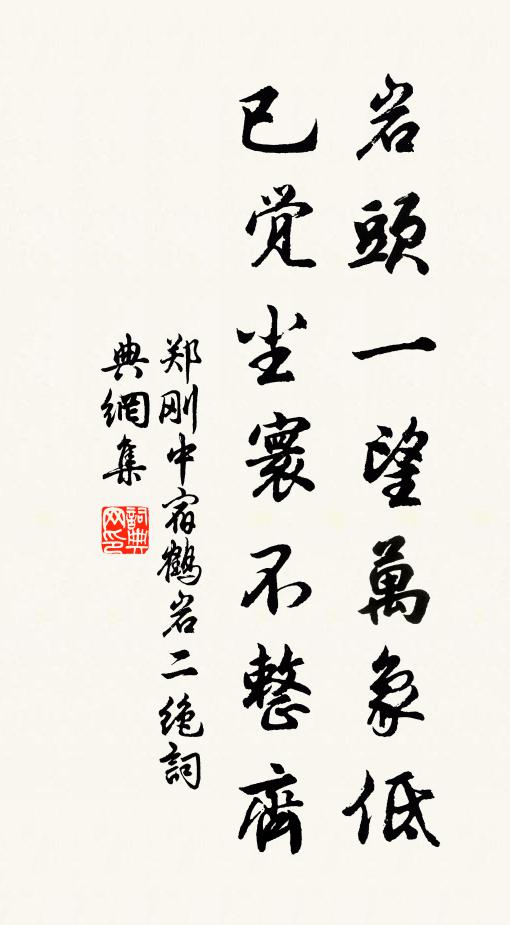 岩頭一望萬象低
已覚尘寰不整齊
郑刚中宿鶴岩二绝詞
典網集
詞典网印